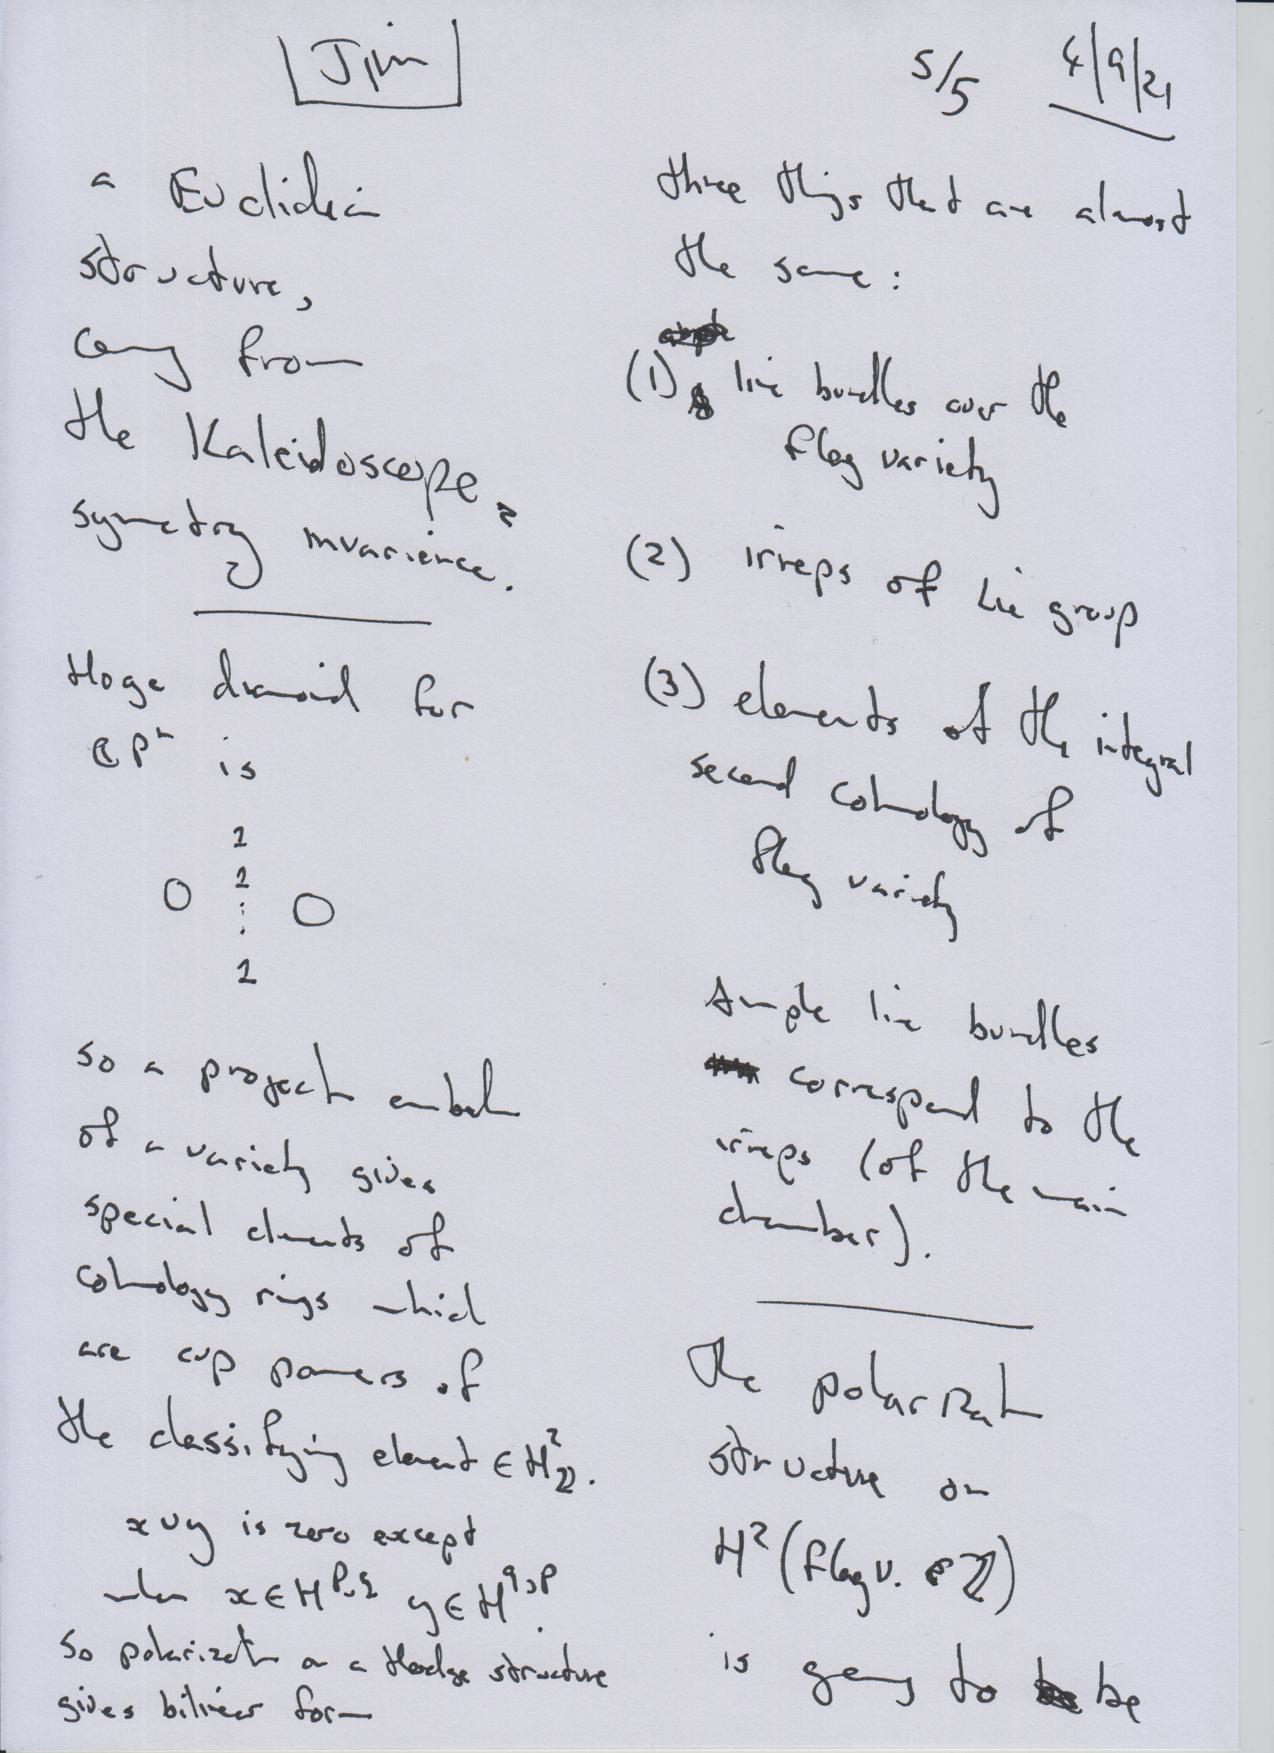 Jim
5/5 4/9/21
a Euclidean
structure,
coming from
the Kaleidoscope
symmetry invarience.
Hoge diamoid for
CPⁿ is
1
1
0 ⋮ 0
1
so a project embed
of a variety gives
special elements of
cohomology rings which
are cup powers of
the classifying element ∈ H²_ℤ.
x ∪ y is zero except
when x ∈ H^{p,q} y ∈ H^{q,p}.
so polarizat on a Hodge structure
gives bilinear form
three things that are almost
the same:
(1) line bundles over the
flag variety
(2) irreps of Lie group
(3) elements of the integral
second cohomology of
flag variety
Ample line bundles
correspond to the
irreps (of the main
chamber).
The polarizat
structure on
H²(flag v. ℤ)
is going to be